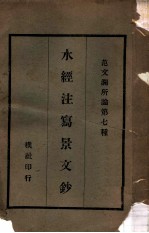 范文澜所論第七種
水經注寫景文鈔
樸社印行